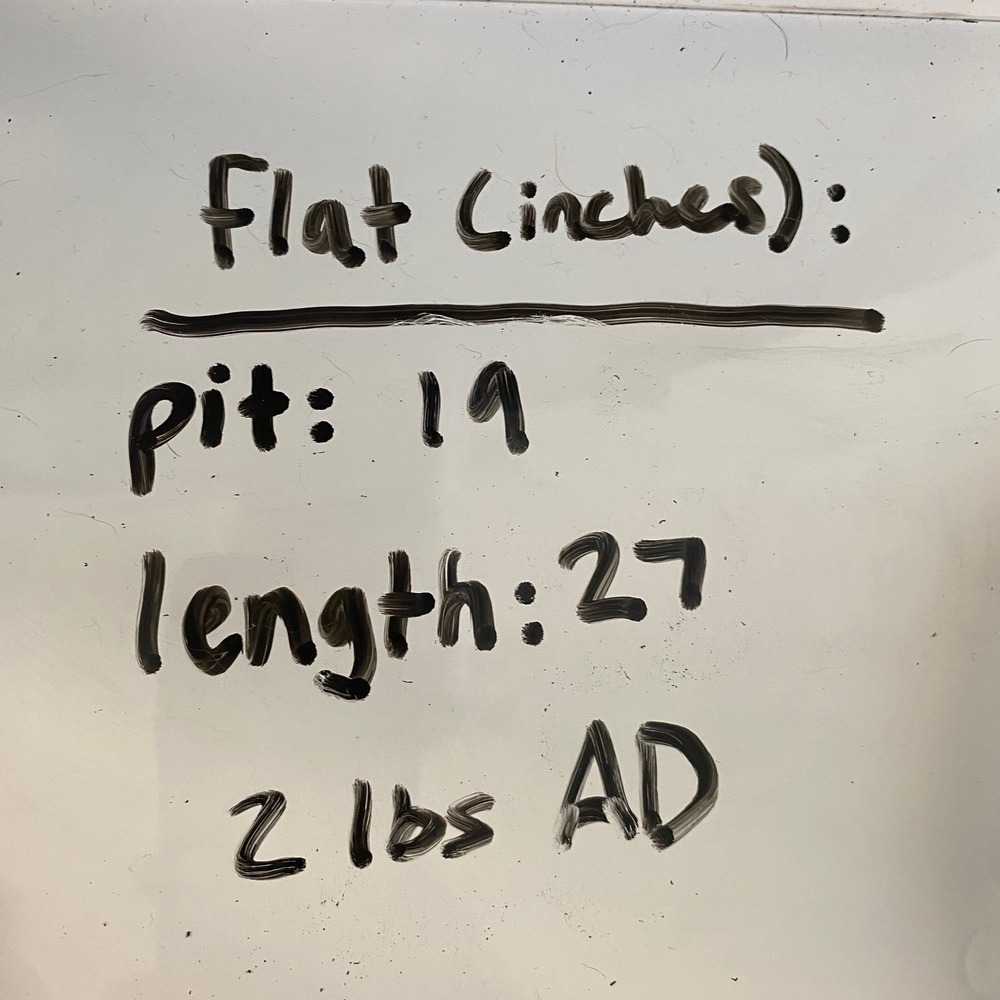 Flat (inches):
pit: 19
length: 27
2 lbs AD